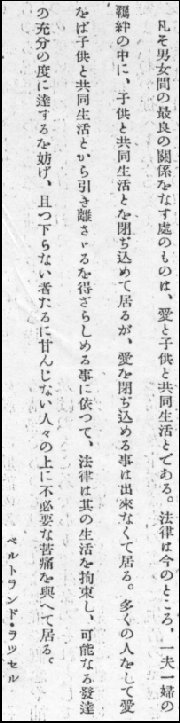 凡そ男女間の最良の關係をなす處のものは、愛と子供と共同生活とである。法律は今のところ、一夫一婦の
羈絆の中に、子供と共同生活とを閉ぢ込めて居るが、愛を閉ぢ込める事は出來なくて居る。多くの人をして愛
をば子供と共同生活とから引き離さゞるを得ざらしめる事に依つて、法律は其の生活を拘束し、可能なる發達
の充分の度に達するを妨げ、且つ下らない者たるに甘んじない人々の上に不必要な苦痛を與へて居る。
ベルトランド・ラッセル